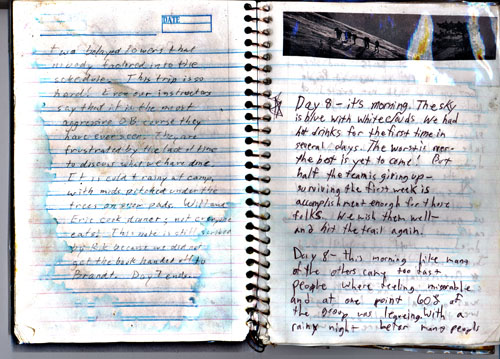 DATE
two belayed lowers that
already factored into the
schedule. This trip is so
hard! Even our instructors
say that it is the most
aggressive OB course they
have ever seen. They are
frustrated by the lack of time
to discuss what we have done.
It is cold & rainy at camp,
with mids pitched under the
trees on over pads. Will and
Eric cook dinner; not everyone
eats! This note is still scribed
by B.K because we did not
get the book handed off to
Brandt. Day 7 ends.
Day 8 - it's morning. The sky
is blue with white clouds. We had
hot drinks for the first time in
several days. The worst is over -
the best is yet to come! But
half the team is giving up -
surviving the first week is
accomplishment enough for those
folks. We wish them well -
and hit the trail again.
Day 8 - this morning like many
of the others came too fast
people where feeling miserable
and at one point 60% of
the group was leaveing. With a
rainy night behind many people